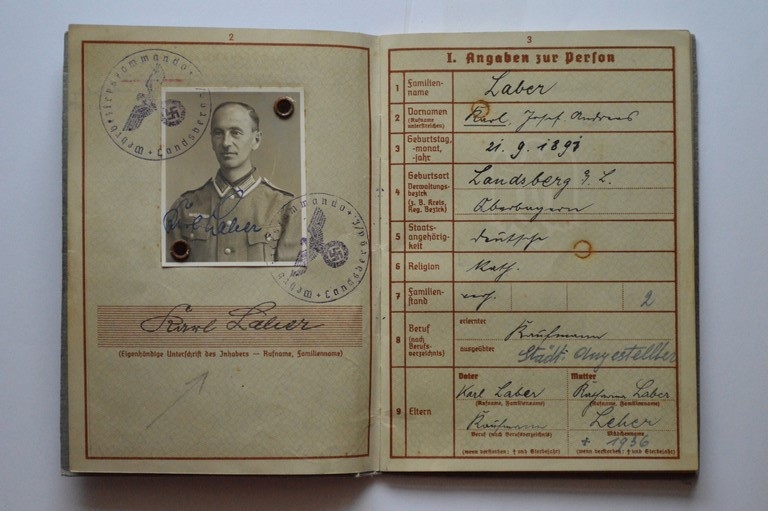 2
Wehrbezirkskommando Landsberg
Karl Laber
Wehrbezirkskommando Landsberg/L.
Karl Laber
(Eigenhändige Unterschrift des Inhabers — Rufname, Familienname)
3
I. Angaben zur Person
1 Familien-
name
Laber
2 Vornamen
(Rufname
unterstreichen)
Karl, Josef Andreas
3 Geburtstag,
-monat,
-jahr
21. 9. 1891
4 Geburtsort
Verwaltungs-
bezirk
(z. B. Kreis,
Reg. Bezirk)
Landsberg a. L.
Oberbayern
5 Staats-
angehörig-
keit
deutsche
6 Religion
Kath.
7 Familien-
stand
verh.
2
8 Beruf
(nach
Berufs-
verzeichnis)
erlernter
Kaufmann
ausgeübter
Städt. Angestellter
9 Eltern
Vater
Karl Laber
(Rufname, Familienname)
Kaufmann
Beruf (nach Berufsverzeichnis)
(wenn verstorben: † und Sterbejahr)
Mutter
Laber
(Rufname, Familienname)
Leher
Mädchenname
+ 1936
(wenn verstorben: † und Sterbejahr)